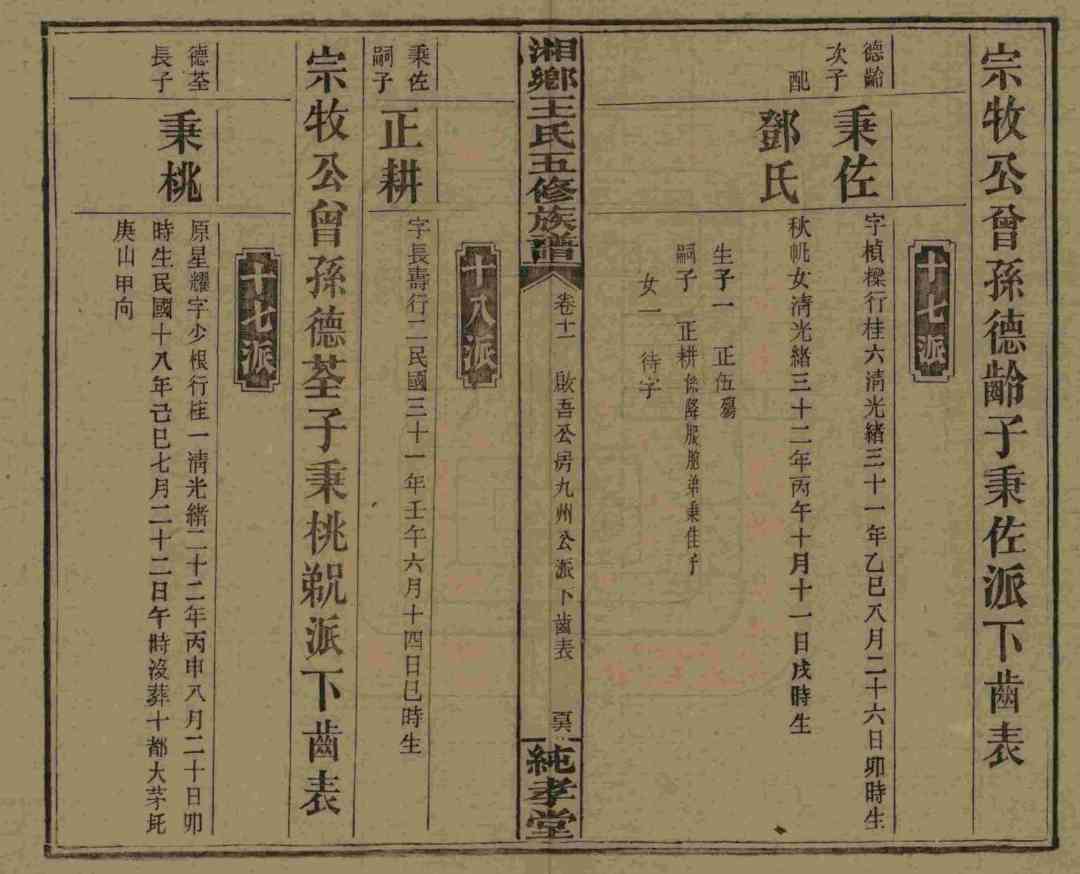 宗牧公曾孫德齡子秉佐派下齒表
十七派
德齡
次子
秉佐
字楨樑行桂六清光緒三十一年乙巳八月二十六日卯時生
配
鄧氏
秋帆女清光緒三十二年丙午十月十一日戌時生
生子一 正伍殤
嗣子 正耕係降服胞弟秉佳子
女一 待字
湘鄉王氏五修族譜
卷十一 啟吾公房九州公派下齒表
純孝堂
十八派
秉佐
嗣子
正耕
字長壽行二民國三十一年壬午六月十四日巳時生
宗牧公曾孫德荃子秉桃派下齒表
十七派
德荃
長子
秉桃
原星耀字少根行桂一清光緒二十二年丙申八月二十日卯
時生民國十八年己巳七月二十二日午時沒葬十都大茅坑
庚山甲向